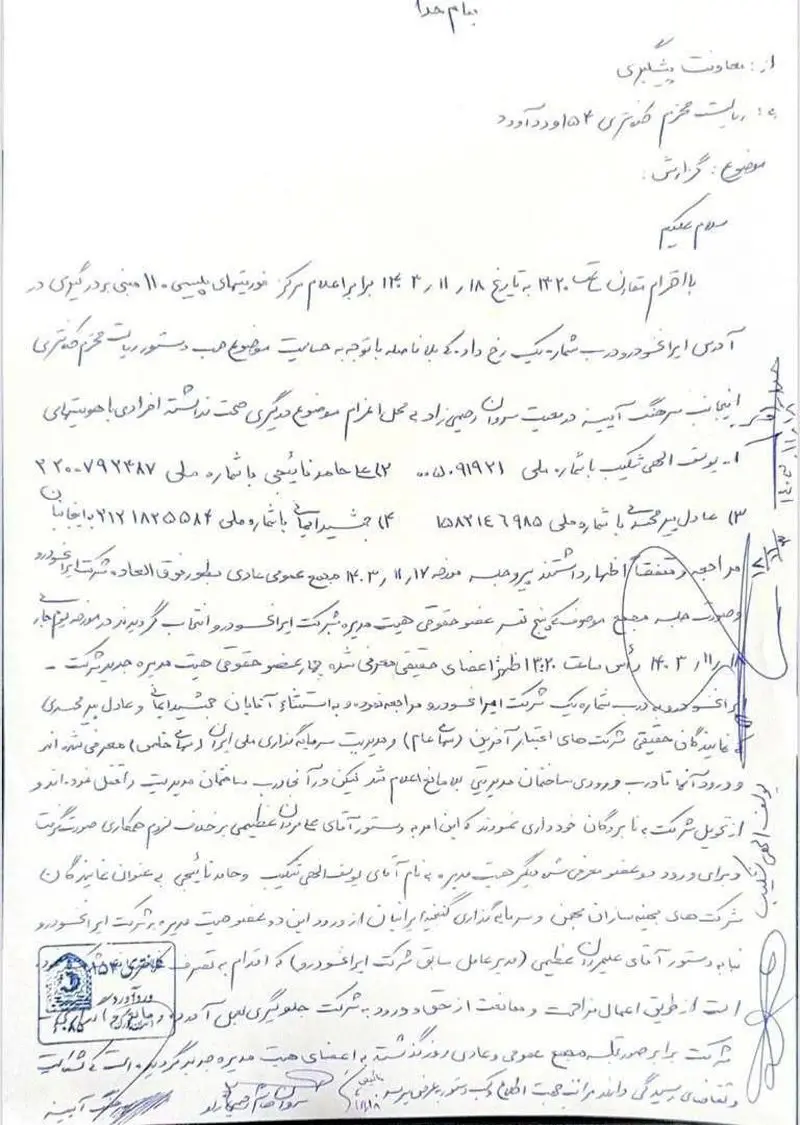 بنام خدا
از: معاونت پیشگیری
به: ریاست محترم کلانتری ۱۵۴ وردآورد
موضوع: گزارش:
سلام علیکم
با احترام مقارن ساعت ۱۳:۲۰ به تاریخ ۱۴۰۳/۱۱/۱۸ برابر اعلام مرکز فوریتهای پلیسی ۱۱۰ مبنی بر درگیری در
آدرس ایرانخودرو درب شماره یک رخ داد. که بلافاصله با توجه به حساسیت موضوع حسب دستور ریاست محترم کلانتری
اینجانب سرهنگ آیینه در معیت سروان رحیمی زاد به محل اعزام موضوع درگیری صحت نداشته افرادی با هویتهای
۱- یوسف الهی شکیب با شماره ملی ۰۰۵۰۹۱۹۲۱ ۲) حامد نائیجی با شماره ملی ۳۲۰۰۷۹۲۴۸۷
۳) عادل پیرمحمدی با شماره ملی ۱۵۸۲۱۴۶۹۸۵ ۴) جمشید ایمانی با شماره ملی ۲۱۲۱۸۲۵۵۸۴ به اینجانبان
مراجعه و متفقاً اظهار داشتند پیرو جلسه مورخه ۱۴۰۳/۱۱/۱۷ مجمع عمومی عادی بطور فوق العاده شرکت ایرانخودرو
و صورت جلسه مجمع موصوف که پنج نفر عضو حقوقی هیت مدیره شرکت ایرانخودرو انتخاب گردیدند در مورخه یوم جاری
۱۴۰۳/۱۱/۱۸ رأس ساعت ۱۳:۲۰ ظهر اعضای حقیقی معرفی شده چهار عضو حقوقی هیت مدیره جدید شرکت -
ایرانخودرو به درب شماره یک شرکت ایرانخودرو مراجعه نموده و به استثناء آقایان جمشید ایمانی و عادل پیرمحمدی
که نمایندگان حقیقی شرکت های اعتبار آفرین (سهامی عام) و مدیریت سرمایه گذاری ملی ایران (سهامی خاص) معرفی شده اند
و ورود آنها تا درب ورودی ساختمان مدیریتی بلامانع اعلام شد لیکن در آنجا درب ساختمان مدیریت را قفل نموده اند و
از تحویل شرکت به نامبردگان خودداری نمودند که این امر به دستور آقای علیمردان عظیمی بر خلاف لزوم همکاری صورت گرفت
و برای ورود دو عضو معرفی شده دیگر هیت مدیره به نام آقای یوسف الهی شکیب و حامد نائیجی به عنوان نمایندگان
شرکت های بهینه سازان بهمن و سرمایه گذاری گنجینه ایرانیان از ورود این دو عضو هیت مدیره به شرکت ایرانخودرو
بنا به دستور آقای علیمردان عظیمی (مدیرعامل سابق شرکت ایرانخودرو) که اقدام به تصرف
است از طریق اعمال مزاحمت و ممانعت از حق و ورود به شرکت جلوگیری بعمل آمده و مانع واگذاری
شرکت برابر صورتجلسه مجمع عمومی و عادی روز گذشته به اعضای هیت مدیره جدید گردیده است که شکایت
و تقاضای رسیدگی دارند مراتب جهت اطلاع و کسب دستور بعرض میرسد
سروان رحیمی زاد
سرهنگ آیینه
یوسف الهی شکیب
کلانتری ۱۵۴
وردآورد